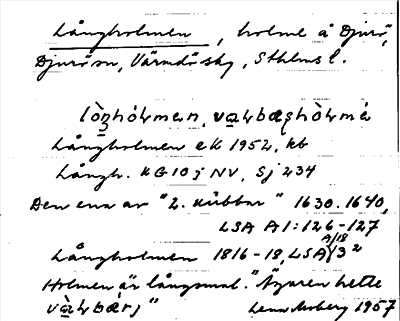 Långholmen, holme å Djurö,
Djurö sn, Värmdö sky, Sthlms l.
lòŋhòlmen, vàlbærghòlmé
Långholmen ek 1952, kb
Långh. KG 10 j NV, Sj 234
Den ena av "2. Kubbar" 1630. 1640,
LSA A1: 126-127
Långholmen 1816-18, LSA 3²
A/18
Holmen är långsmal. "Ägaren hette
vàlbærj"
1957